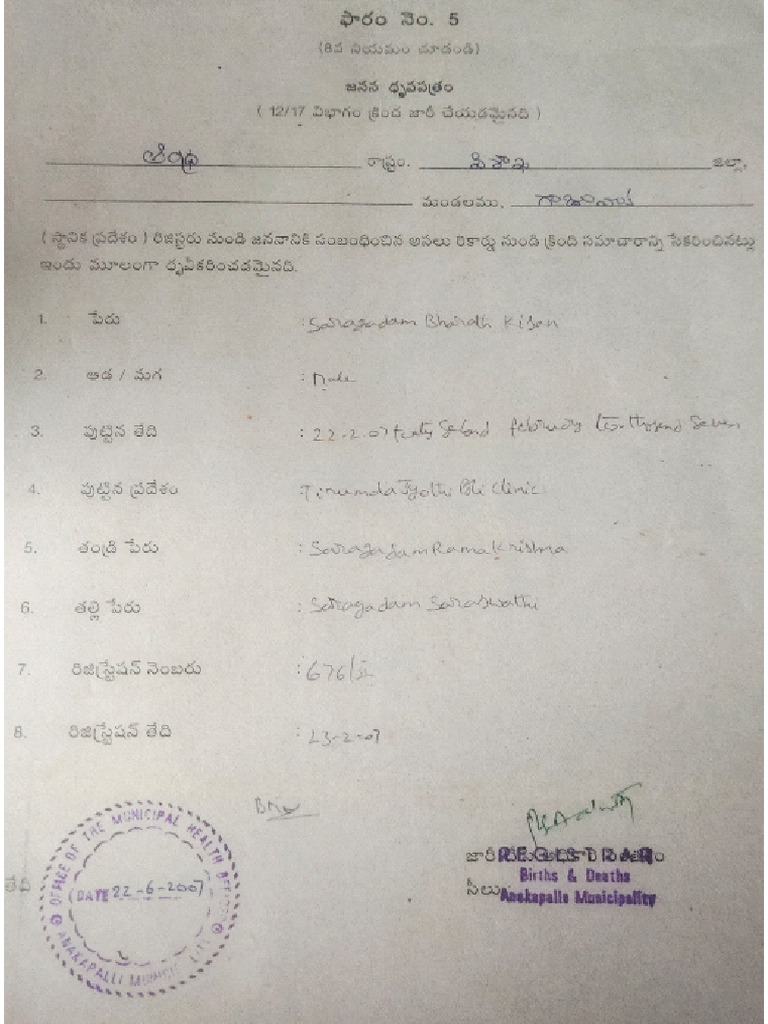 ఫారం నెం. 5
(8వ నియమం చూడండి)
జనన ధృవపత్రం
( 12/17 విభాగం క్రింద జారీ చేయడమైనది )
ఆంధ్ర రాష్ట్రం. విశాఖ జిల్లా,
మండలము, గాజువాక
( స్థానిక ప్రదేశం ) రిజిస్తరు నుండి జననానికి సంబంధించిన అసలు రికార్డు నుండి క్రింది సమాచారాన్ని సేకరించినట్లు
ఇందు మూలంగా ధృవీకరించడమైనది.
1. పేరు : Saragadam Bharath Kisan
2. ఆడ / మగ : Male
3. పుట్టిన తేది : 22-2-07 february Seven
4. పుట్టిన ప్రదేశం : Clinic
5. తండ్రి పేరు : Saragadam Rama Krishna
6. తల్లి పేరు : Saragadam Saraswathi
7. రిజిస్ట్రేషన్ నెంబరు : 676/
8. రిజిస్ట్రేషన్ తేది : 23-2-07
తేది
OFFICE OF THE MUNICIPAL HEALTH OFFICER
DATE 22-6-2007
ANAKAPALLI MUNICIPALITY
జారీచేయు అధికారి సంతకం
REGISTRAR
Births & Deaths
సీలు
Anakapalle Municipality